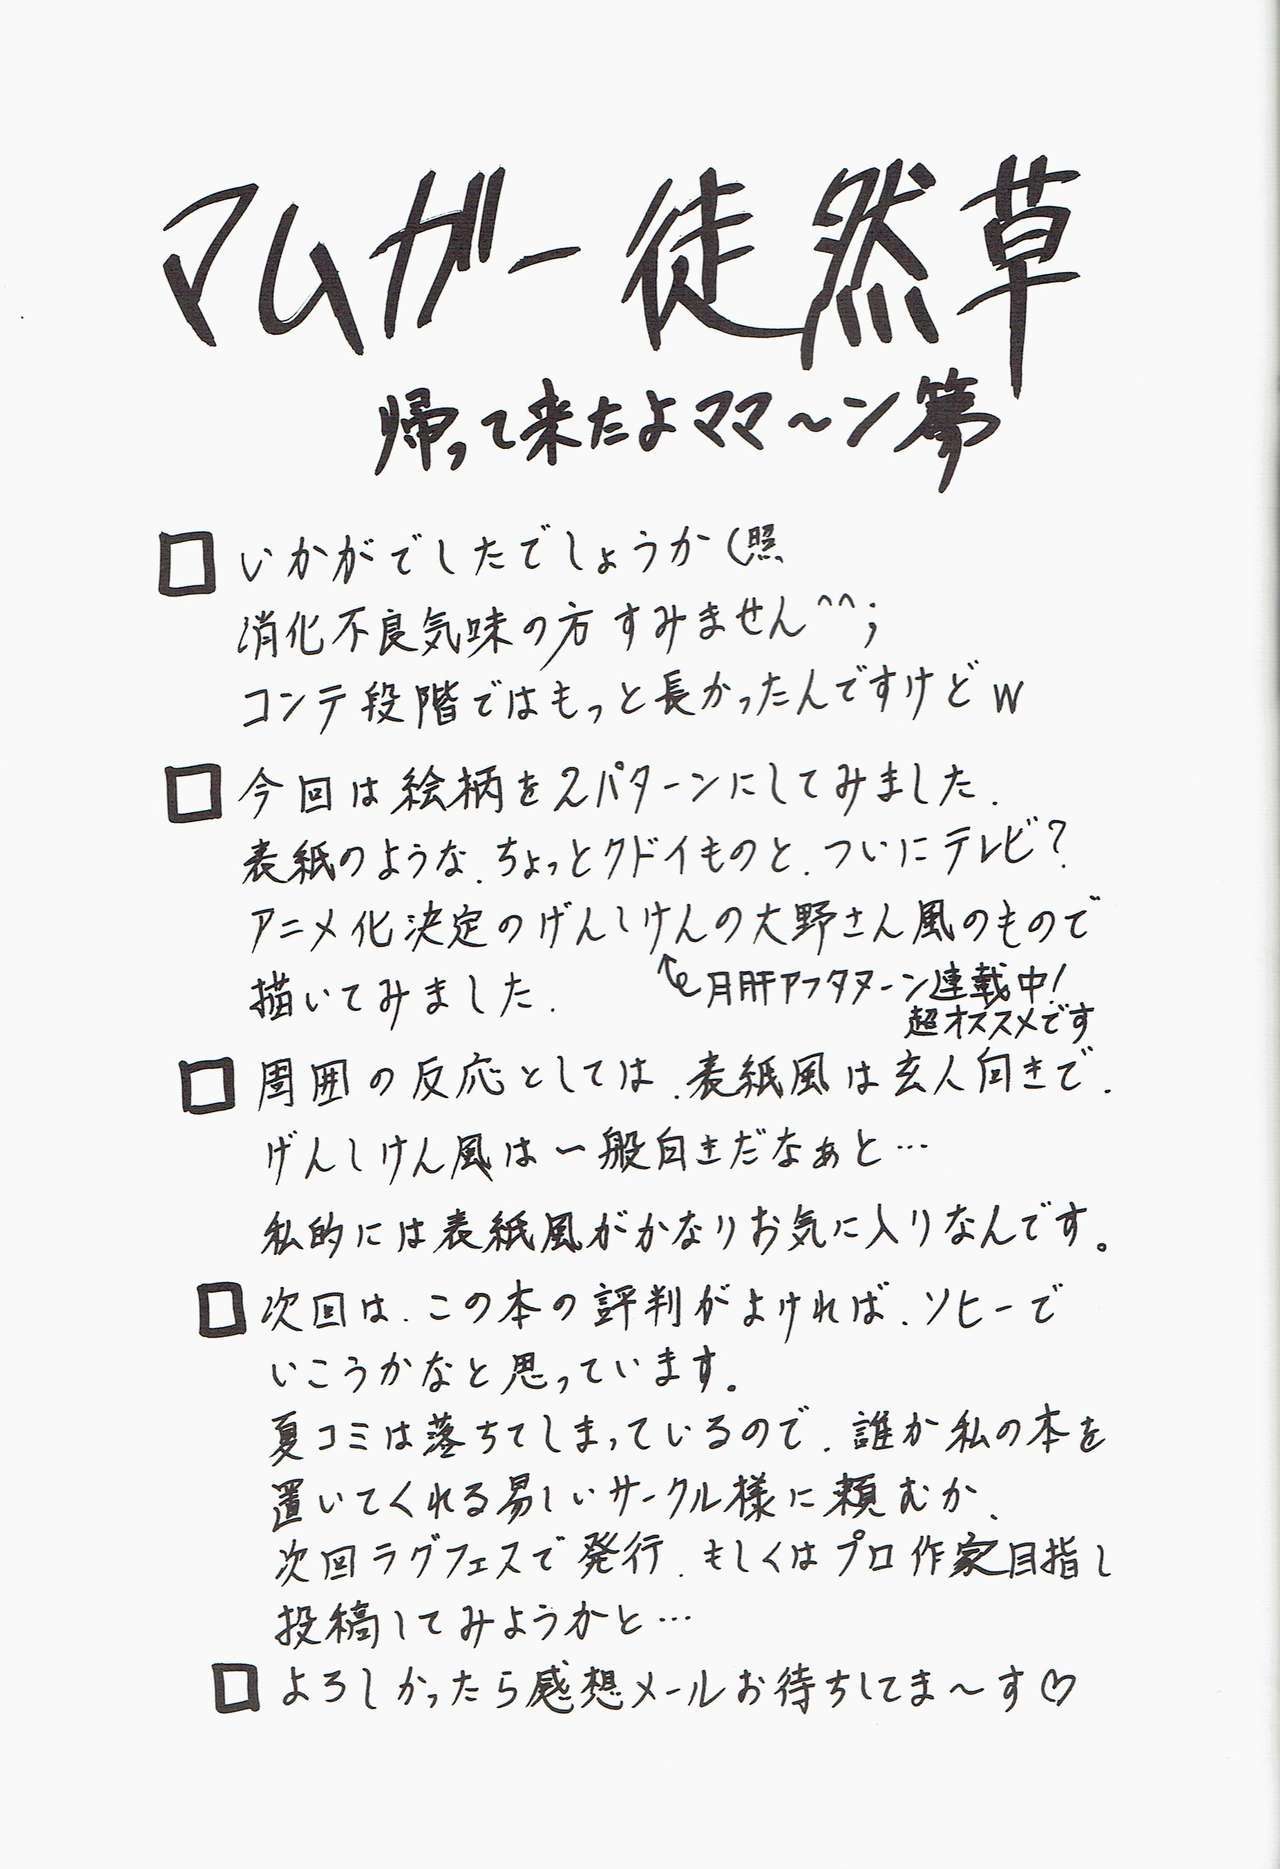 マムガー徒然草
帰って来たよママ〜ン篇
□いかがでしたでしょうか(照
消化不良気味の方すみません^^;
コンテ段階ではもっと長かったんですけどw
□今回は絵柄を2パターンにしてみました.
表紙のような、ちょっとクドイものと、ついにテレビ?
アニメ化決定のげんしけんの大野さん風のもので
描いてみました.
月刊アフタヌーン連載中!
超オススメです
□周囲の反応としては、表紙風は玄人向きで、
げんしけん風は一般向きだなぁと…
私的には表紙風がかなりお気に入りなんです。
□次回は、この本の評判がよければ、ソヒーで
いこうかなと思っています。
夏コミは落ちてしまっているので、誰か私の本を
置いてくれる易しいサークル様に頼むか、
次回ラグフェスで発行、もしくはプロ作家目指し
投稿してみようかと…
□よろしかったら感想メールお待ちしてま〜す♡